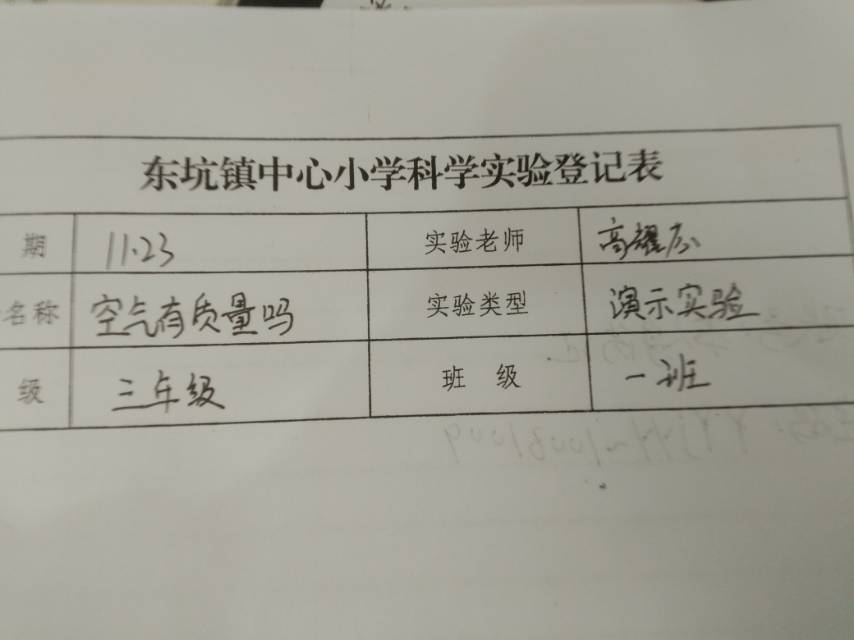 东坑镇中心小学科学实验登记表
期 11.23 实验老师 高耀
名称 空气有质量吗 实验类型 演示实验
级 三年级 班 级 一班